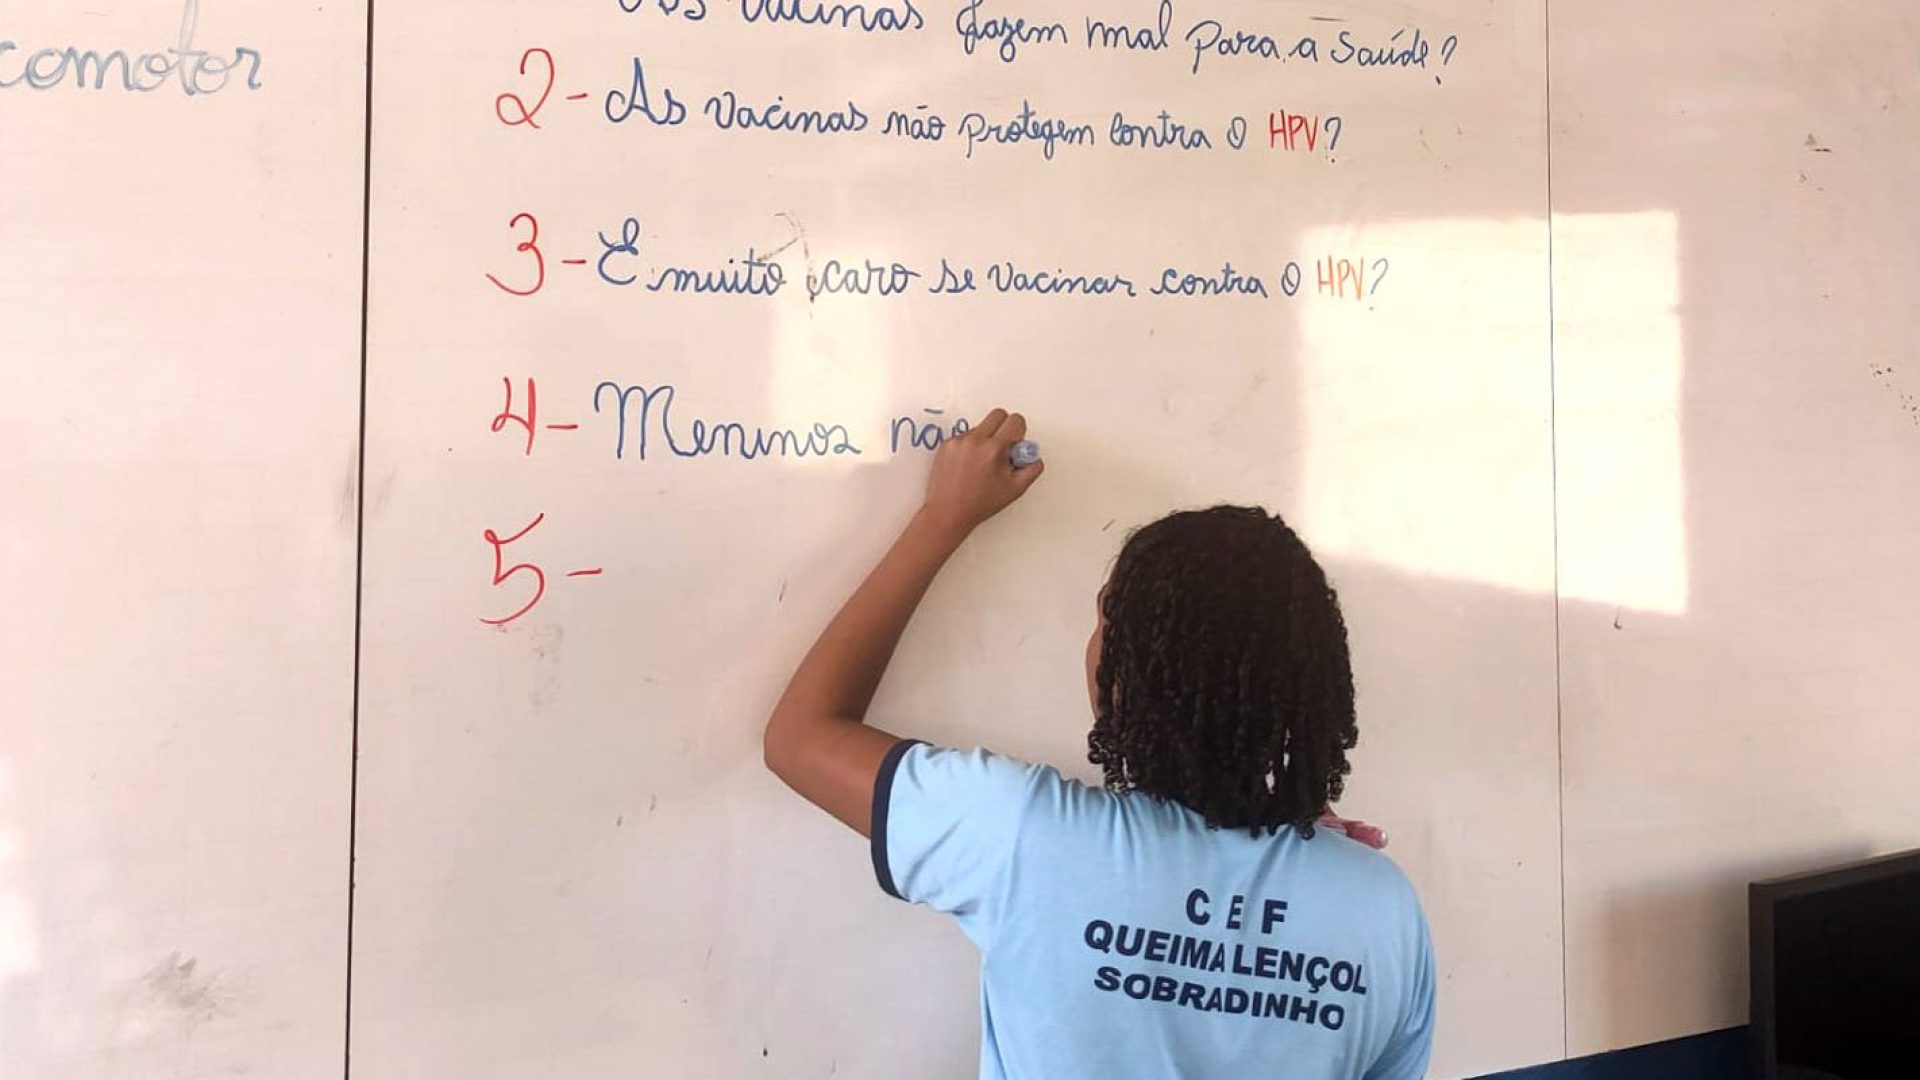 comotor
As vacinas fazem mal para a saúde?
2- As vacinas não protegem contra o HPV?
3- É muito caro se vacinar contra o HPV?
4- Meninos não
5-
C E F
QUEIMA LENÇOL
SOBRADINHO